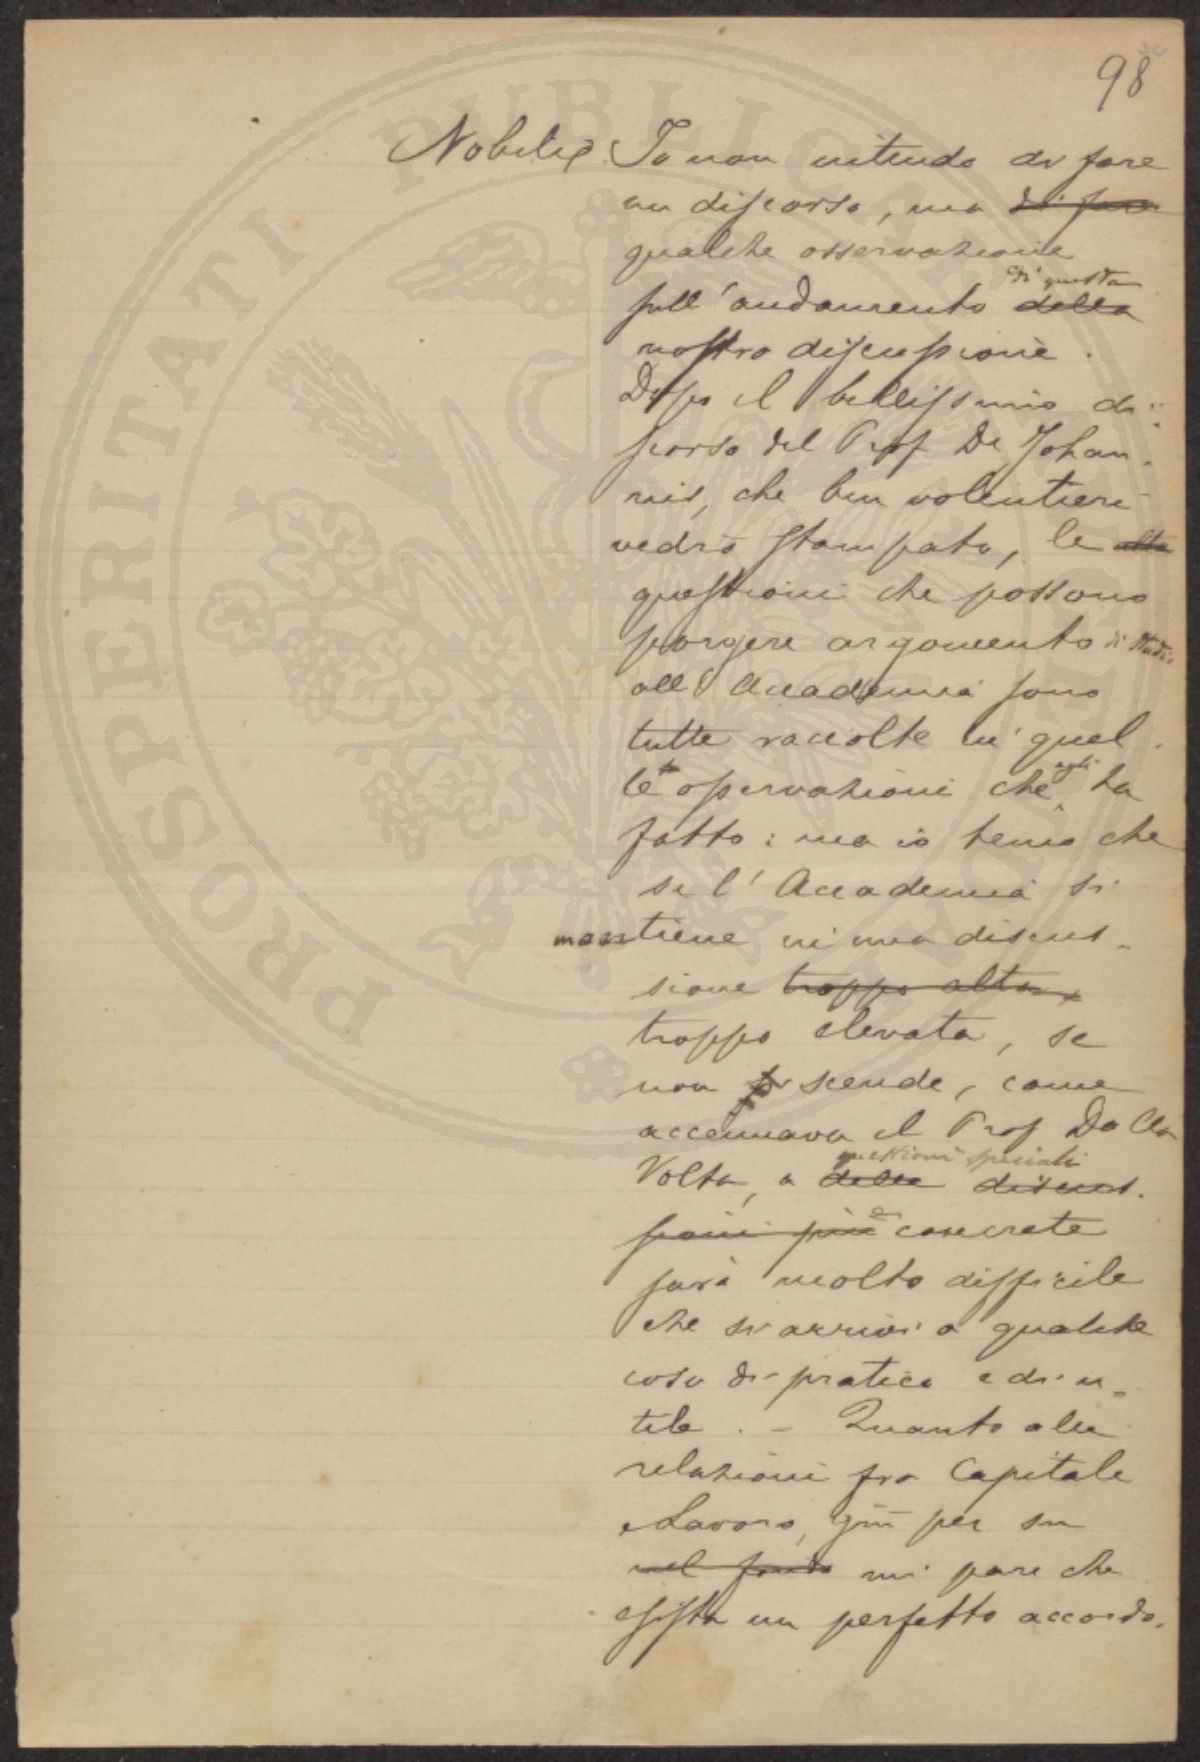 98
Nobili Io non intendo di fare
un discorso, ma di fare
qualche osservazione
di questa
sull'andamento della
nostra discussione.
Dopo il bellissimo di-
scorso del Prof De Johan-
nis, che ben volentieri
vedrò stampato, le alte
questioni che possono
porgere argomento di studio
all'Accademia sono
tutte raccolte in quel-
egli
le osservazioni che ha
fatto: ma io temo che
se l'Accademia si
mantiene in una discus-
sione troppo alta,
troppo elevata, se
non si scende, come
accennava il Prof Dalla
questioni speciali
Volta, a delle discus-
e
sioni più concrete
sarà molto difficile
che si arrivi a qualche
cosa di pratico e di u-
tile. - Quanto alle
relazioni fra Capitale
e Lavoro, giù per su
nel fondo mi pare che
esista un perfetto accordo.
PROSPERITATI PUBLICAE